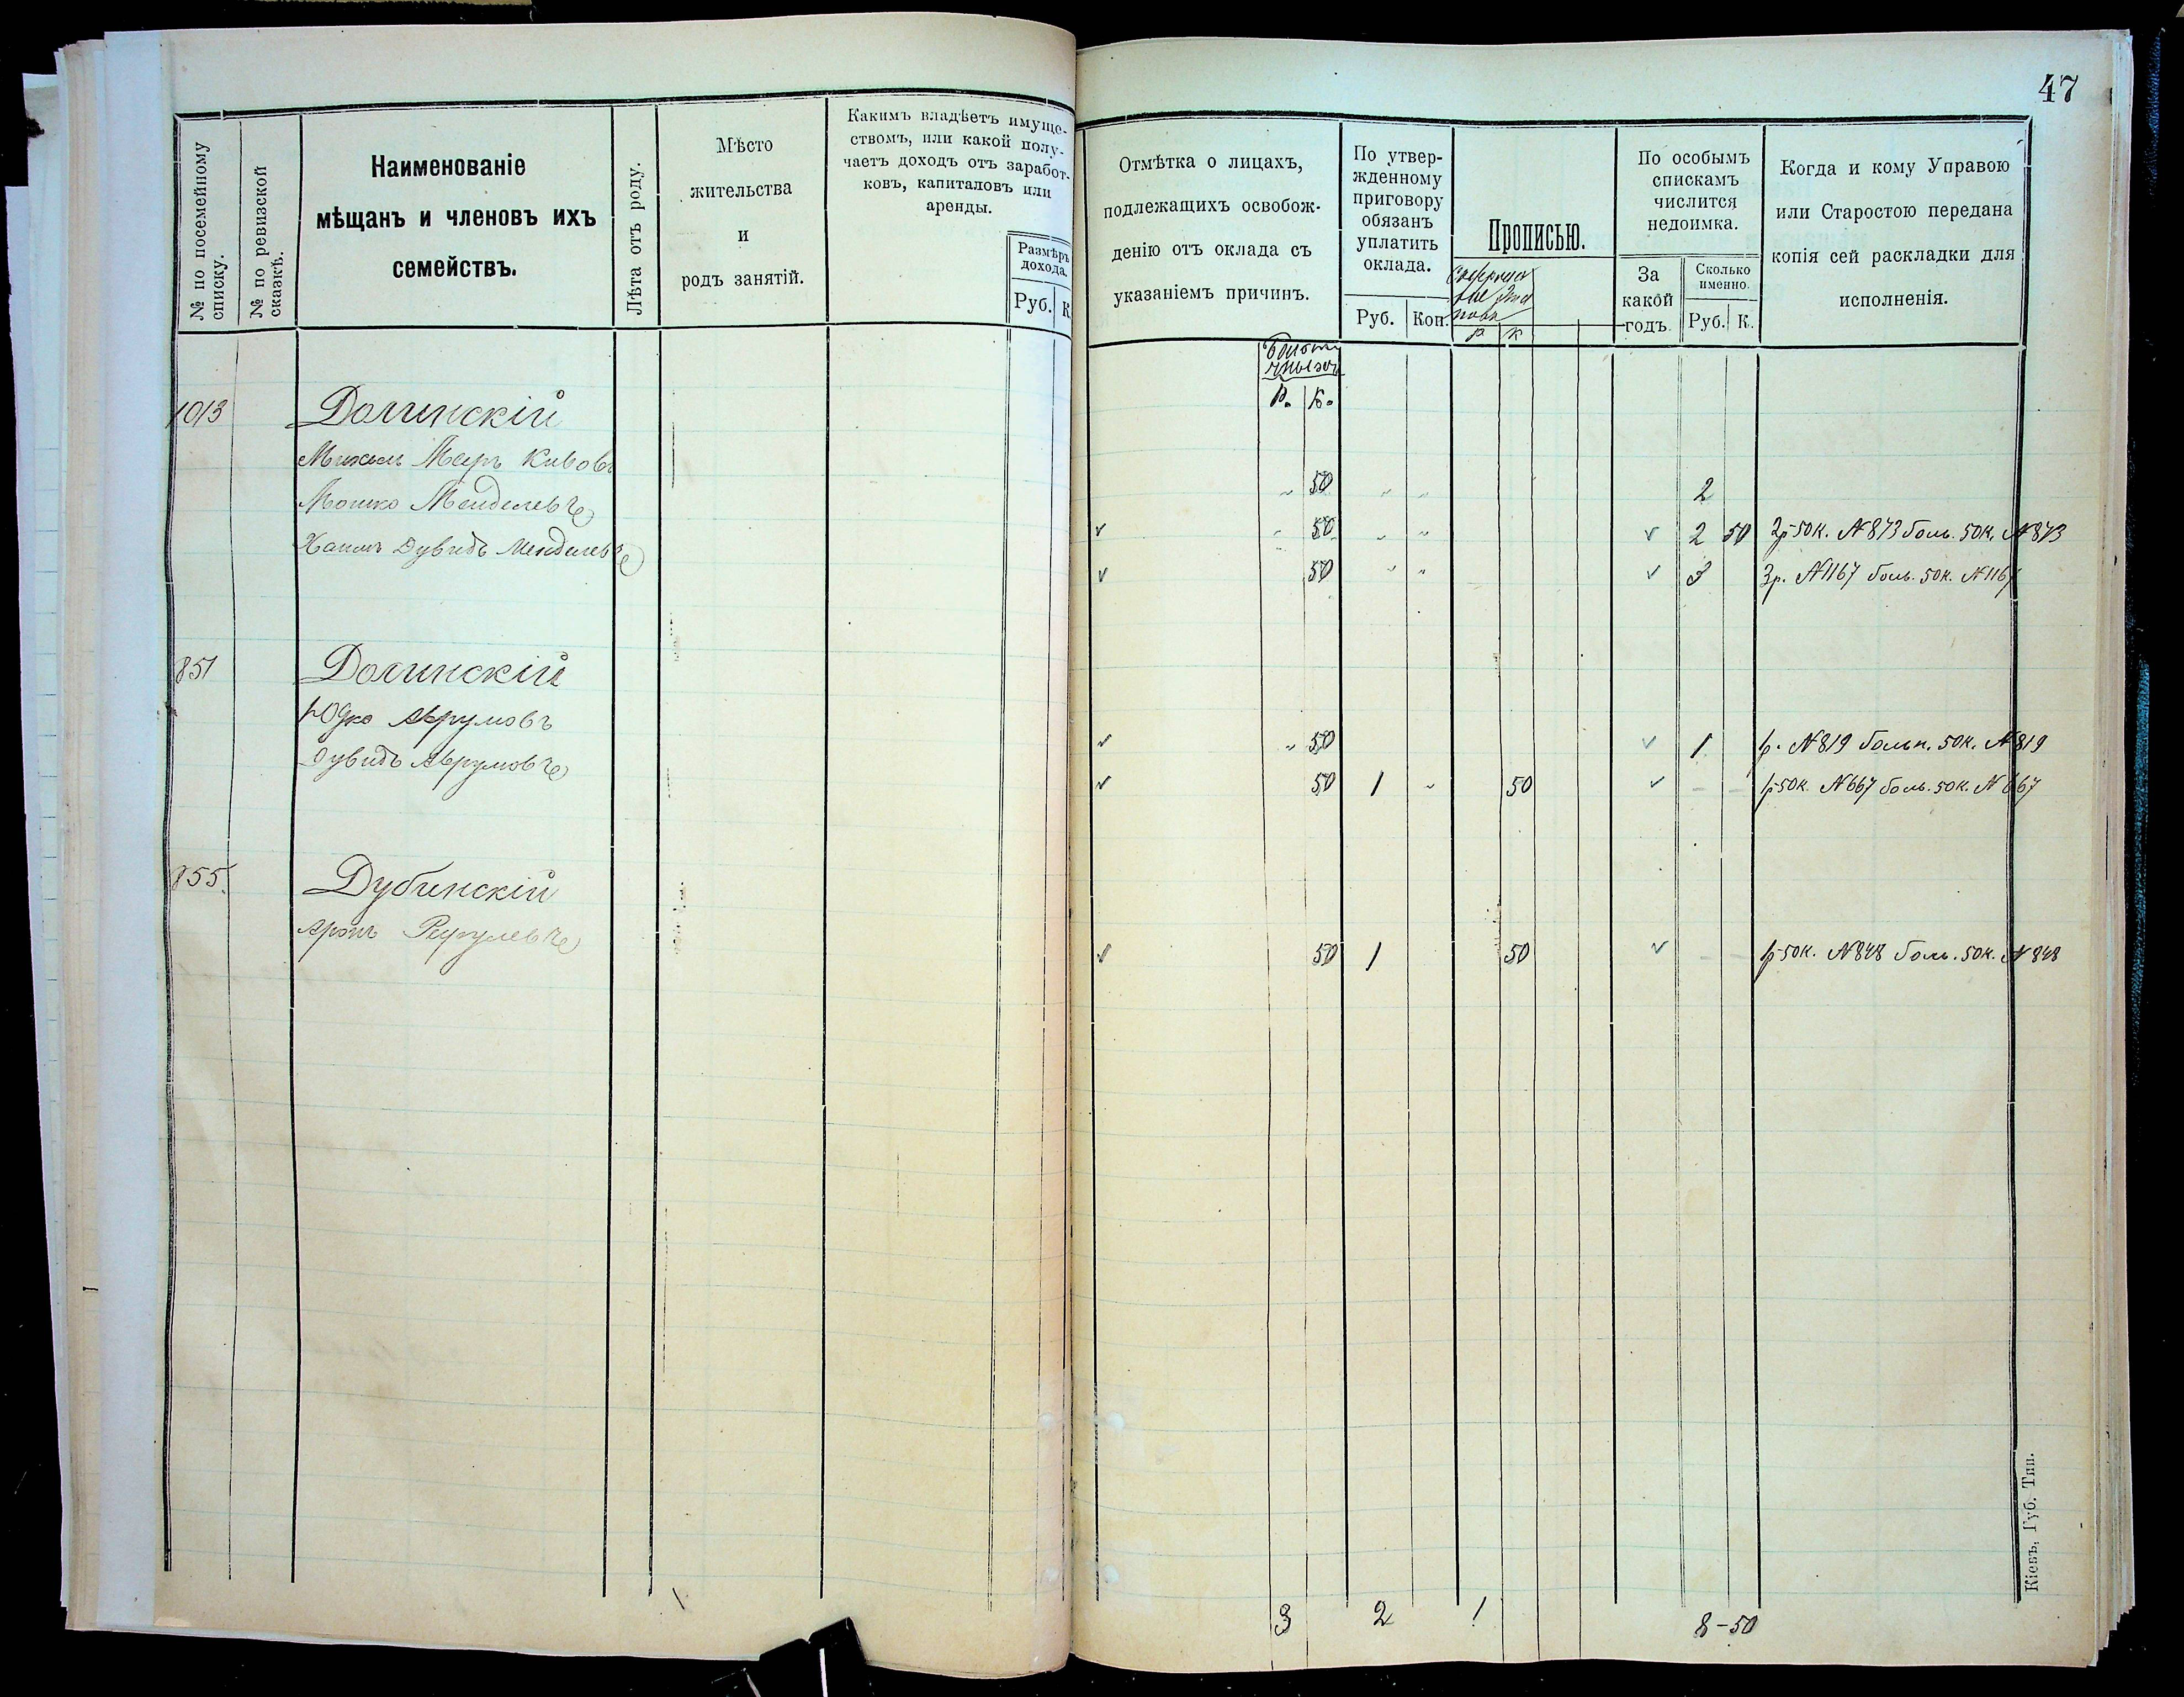 47
№ по посемейному
списку.
№ по ревизской
сказкѣ.
Наименованіе
мѣщанъ и членовъ ихъ
семействъ.
Лѣта отъ роду.
Мѣсто
жительства
и
родъ занятій.
Какимъ владѣетъ имуще-
ствомъ, или какой полу-
чаетъ доходъ отъ заработ-
ковъ, капиталовъ или
аренды.
Размѣръ
дохода.
Руб. К.
Отмѣтка о лицахъ,
подлежащихъ освобож-
денію отъ оклада съ
указаніемъ причинъ.
По утвер-
жденному
приговору
обязанъ
уплатить
оклада.
Руб. Коп.
Прописью.
Р К
По особымъ
спискамъ
числится
недоимка.
За
какой
годъ.
Сколько
именно.
Руб. К.
Когда и кому Управою
или Старостою передана
копія сей раскладки для
исполненія.
Р. К.
1013 Долинскій
Михель Меер Кивовъ
" 50 " " 2
Мошко Менделевъ
" 50 " " 2 50 2р 50к. №873 боль. 50к. №873
Хаимъ Дувидъ Менделевъ
50 " " 3 3р. №1167 боль. 50к. №1167
851 Долинскій
Юдко Аврумовъ
" 50 1 1р. №819 больн. 50к. №819
Дувидъ Аврумовъ
50 1 " 50 1р 50к. №667 боль. 50к. №667
855. Дубинскій
Аронъ
50 1 50 1р 50к. №848 боль. 50к. №848
3 2 1 8-50
Кіевъ, Губ. Тип.